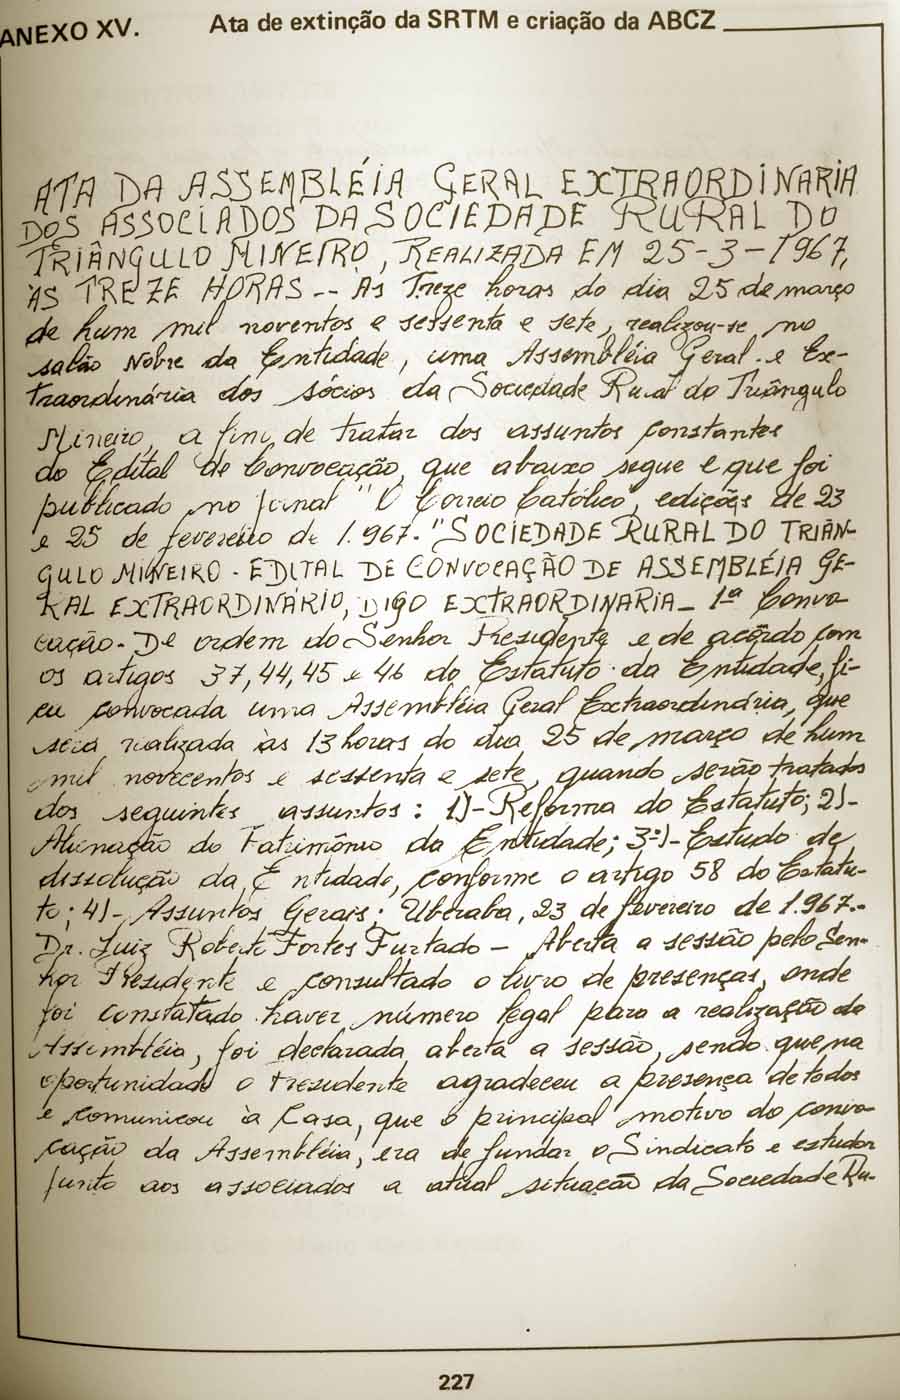 ANEXO XV. Ata de extinção da SRTM e criação da ABCZ
ATA DA ASSEMBLÉIA GERAL EXTRAORDINARIA
DOS ASSOCIADOS DA SOCIEDADE RURAL DO
TRIÂNGULO MINEIRO, REALIZADA EM 25-3-1967,
ÀS TREZE HORAS -- Às Treze horas do dia 25 de março
de hum mil noventos e sessenta e sete, realizou-se, no
salão Nobre da Entidade, uma Assembléia Geral e Ex-
traordinária dos sócios da Sociedade Rural do Triângulo
Mineiro, a fim de tratar dos assuntos constantes
do Edital de Convocação, que abaixo segue e que foi
publicado no jornal "O Correio Católico", edições de 23
e 25 de fevereiro de 1.967. "SOCIEDADE RURAL DO TRIÂN-
GULO MINEIRO - EDITAL DE CONVOCAÇÃO DE ASSEMBLÉIA GE-
RAL EXTRAORDINÁRIO, DIGO EXTRAORDINARIA - 1ª Convo-
cação - De ordem do Senhor Presidente e de acôrdo com
os artigos 37, 44, 45 e 46 do Estatuto da Entidade, fi-
cu convocada uma Assembléia Geral Extraordinária, que
será realizada às 13 horas do dia 25 de março de hum
mil novecentos e sessenta e sete, quando serão tratados
dos seguintes assuntos: 1)- Reforma do Estatuto; 2)-
Alienação do Patrimônio da Entidade; 3º)- Estudo de
dissolução da Entidade, conforme o artigo 58 do Estatu-
to; 4)- Assuntos Gerais; Uberaba, 23 de fevereiro de 1.967.-
Dr. Luiz Roberto Fortes Furtado - Aberta a sessão pelo Sen-
hor Presidente e consultado o livro de presenças, onde
foi constatado haver número legal para a realização da
Assembléia, foi declarada aberta a sessão, sendo que na
oportunidade o Presidente agradeceu a presença de todos
e comunicou à Casa, que o principal motivo do convo-
cação da Assembléia, era de fundar o Sindicato e estudar
junto aos associados a atual situação da Sociedade Ru-
227